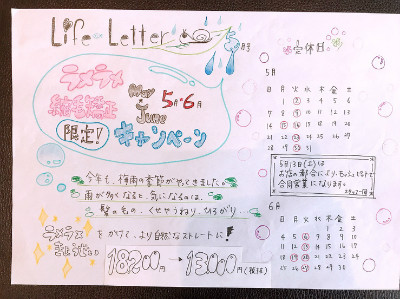 Life Letter
5月号
ラメラメ
縮毛矯正
限定!
May
June
5月・6月
キャンペーン
今年も、梅雨の季節がやってきました。
雨が多くなると、気になるのは、
髪のもの、くせやうねり、ひろがり…
ラメラメ
をかけて、より自然なストレートに!
18200円→13000円(税抜)
定休日
5月
日 月 火 水 木 金 土
1 2 3 4 5 6
7 8 9 10 11 12 13
14 15 16 17 18 19 20
21 22 23 24 25 26 27
28 29 30 31
5月13日(土)は
お店の都合により、
合同営業になります。
スタッフ一同
6月
日 月 火 水 木 金 土
1 2 3
4 5 6 7 8 9 10
11 12 13 14 15 16 17
18 19 20 21 22 23 24
25 26 27 28 29 30